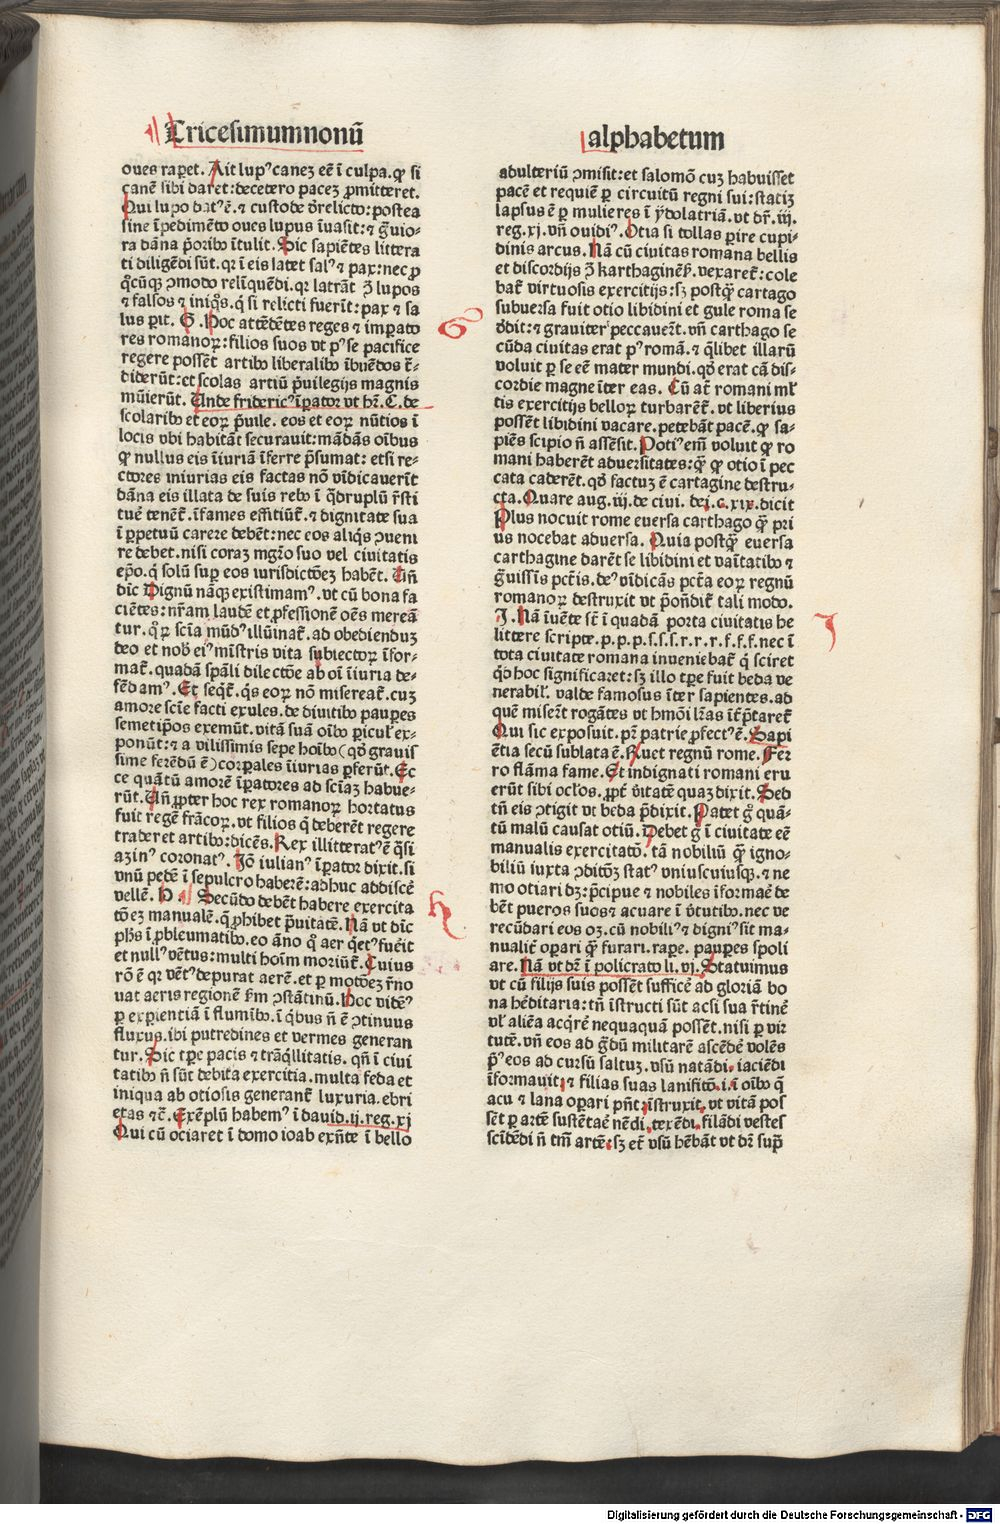 Tricesimumnonū
alphabetum
oues raꝑet. Ait lupꝰ canez eē ī culpa. ꝙ si
canē sibi daret: decetero pacez ꝓmitteret.
Qui lupo datꝰ ē. ⁊ custode dͤrelicto: postea
sine īpedimēto oues lupus īuasit: ⁊ g̃uio-
ra dāna p̃oribꝰ ītulit. Sic sapiētes littera
ti diligēdi sūt. qꝛ ī eis latet salꝰ ⁊ pax: nec ꝓ
qͦcūqꝫ ꝯmodo relīquēdi. qꝛ latrāt ꝯ̄ lupos
⁊ falsos ⁊ iniqͦs. q̇ si relicti fuerīt: pax ⁊ sa
lus ꝑit. G. Hoc attēdētes reges ⁊ imꝑato
res romanoꝝ: filios suos vt ꝑ se pacifice
regere possēt artibꝰ liberalibꝰ
diderūt: et scolas artiū p̃uilegijs magnis
mūierūt. Unde fridericꝰ īꝑator vt hr̄. C. de
scolaribꝰ et eoꝝ p̃uile. eos et eoꝝ nūtios ī
locis vbi habitāt securauit: mādās oībus
ꝙ nullus eis īiuriā īferre p̃sumat: etsi re-
ctores iniurias eis factas nō vīdicauerīt
dāna eis illata de suis rebꝰ ī q̈druplū r̄sti
tuē tenēt̄. īfames effitiūt̄. ⁊ dignitate sua
ī ꝑpetuū carere debēt: nec eos aliqͦs ꝯueni
re debet. nisi coraz mgr̄o suo vel ciuitatis
ep̄o. q̇ solū suꝑ eos iurisdictōez habēt. Uñ
dīc Dignū nāqꝫ existimamꝰ. vt cū bona fa
ciētes: nr̄am laudē et ꝓfessionē oēs mereā
tur. qͦꝝ scīa mūdꝰ illūinat̄. ad obedienduz
deo et nob̄ eiꝰ mīstris vita subiectoꝝ īfor-
mat̄. quadā spāli dilectōe ab oī īiuria de-
fēdamꝰ. Et seqt̄. qͦs eoꝝ nō misereat̄. cuz
amore scīe facti exules. de diuitibꝰ pauꝑes
semetip̄os exemūt. vitā suā oībꝰ ꝑicul̄ ex-
ponūt: ⁊ a vilissimis sepe hoībꝰ (qd̄ grauis
sime ferēdū ē) corꝑales īiurias ꝑferūt. Ec
ce quātū amorē īꝑatores ad scīaz habue-
rūt. Uñ ꝓpter hoc rex romanoꝝ hortatus
fuit regē frācoꝝ. vt filios q̇ deberēt regere
traderet artibꝰ: dicēs. Rex illitteratꝰ ē q̈si
azinꝰ coronatꝰ. Iō iulianꝰ īꝑator dixit. si
vnū pedē ī sepulcro haberē: adhuc addiscē
vellē. H. Secūdo debēt habere exercita
tōez manualē. q̄ ꝓhibet p̃uitatē. Nā vt dīc
ph̄s ī ꝓbleumatibꝰ. eo āno qͦ aer qͥetꝰ fuēit
et nullꝰ vētus: multi hoīm moriūt̄. Cuius
rō ē qꝛ vētꝰ depurat aerē. et ꝑ motōez r̄no
uat aeris regionē ẜm ꝯstātinū. Hoc vidēꝰ
ꝑ exꝑientiā ī flumībꝰ. ī qͥbus ñ ē ꝯtinuus
fluxus. ibi putredines et vermes generan
tur. Sic tꝑe pacis ⁊ trāq̇llitatis. qñ ī ciui
tatibꝰ ñ sūt debita exercitia. multa feda et
iniqua ab otiosis generant̄ luxuria. ebri
etas ⁊c̄. Exēplū habemꝰ ī dauid. ij. reg. xj
Qui cū ociaret ī domo ioab exñte ī bello
adulteriū ꝯmisit: et salomō cuz habuisset
pacē et requiē ꝑ circuitū regni sui: statiꝫ
lapsus ē ꝑ mulieres ī ydolatriā. vt dr̄. iij.
reg. xj. vñ ouidiꝰ. Otia si tollas ꝑire cupi-
dinis arcus. Nā cū ciuitas romana bellis
et discordijs ꝯ̄ karthaginēs̄. vexaret̄: cole
bat̄ virtuosis exercitijs: sꝫ postqͣ̄ cartago
subuersa fuit otio libidini et gule roma se
dͤdit: ⁊ grauiter peccauer̄t. vñ carthago se
cūda ciuitas erat pꝰ romā. ⁊ q̄libet illarū
voluit ꝑ se eē mater mundi. qd̄ erat cā dis-
cordie magne īter eas. Cū at̄ romani ml̄
tis exercitijs belloꝝ turbarēt̄. vt liberius
possēt libidini vacare. petebāt pacē. ꝙ sa-
piēs scipio ñ assēsit. Potiꝰ em̄ voluit ꝙ ro
mani haberēt aduersitates: qͣ̄ ꝙ otio ī pec
cata caderēt. qd̄ factuz ē cartagine destru-
cta. Quare aug. iij. de ciui. dei. c. xix. dicit
Plus nocuit rome euersa carthago qͣ̄ pri
us nocebat aduersa. Quia postqͣ̄ euersa
carthagine darēt se libidini et vaītatibꝰ ⁊
g̃uissīs pct̄is. deꝰ vīdicās pct̄a eoꝝ regnū
romanoꝝ destruxit vt p̄oñdit̄ tali modo.
J. Nā īuēte sт̄ ī quadā porta ciuitatis he
littere scripte. p. p. p. s. s. s. r. r. r. f. f. f. nec ī
tota ciuitate romana inueniebat̄ q̇ sciret
qͥd hoc significaret: sꝫ illo tꝑe fuit beda ve
nerabil̄. valde famosus īter sapientes. ad
quē miser̄t rogātes vt hm̄oi lr̄as īt̄p̄taret̄
Qui sic exposuit. pr̄ patrie ꝓfectꝰ ē. Sapi
ētia secū sublata ē. Ruet regnū rome. Fer
ro flāma fame. Et indignati romani eru
erūt sibi ocl̄os. ꝓpt̄ v̄itatē quaz dixit. Sed
tñ eis ꝯtigit vt beda p̄dixit. Patet gͦ quā-
tū malū causat otiū. Debet gͦ ī ciuitate eē
manualis exercitatō. tā nobiliū qͣ̄ igno-
biliū iuxta ꝯditōꝫ statꝰ vniuscuiusqꝫ. ⁊ ne
mo otiari dꝫ. p̄cipue ⁊ nobiles īformaē de
bēt pueros suos ⁊ acuare ī v̄tutibꝰ. nec ve
recūdari eos oꝫ. cū nobiliꝰ ⁊ digniꝰ sit ma-
nualit̄ oꝑari qͣ̄ furari. raꝑe. pauꝑes spoli
are. Nā vt dr̄ ī policrato li. vj. Statuimus
vt cū filijs suis possēt sufficē ad gloriā bo
na hēditaria: tñ īstructi sūt acsi sua r̄tinē
vl̄ aliēa acq̇rē nequaquā possēt. nisi ꝑ vir
tutē. vñ eos ad g̃dū militarē ascēdē volēs
p̄ꝰ eos ad cursū saltuz. vsū natādi. iaciēdi
īformauit: ⁊ filias suas lanifitō. i. ī oībꝰ q̄
acu ⁊ lana oꝑari pñt: īstruxit. vt vitā pos
sēt ꝑ artē sustētaē nēdi. texēdi. filādi vestes
scīdēdi ñ tm̄ artē: sꝫ et̄ vsū hēbāt vt dr̄ sup̄
Digitalisierung gefördert durch die Deutsche Forschungsgemeinschaft - DFG